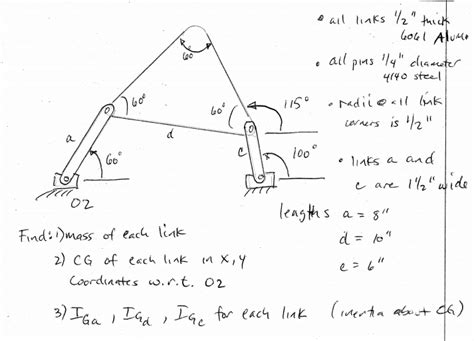 • all links 1/2" thick
6061 Alum.
• all pins 1/4" diameter
4140 steel
• radii @ all link
corners is 1/2"
• links a and
c are 1 1/2" wide
lengths a = 8"
d = 10"
c = 6"
60
60°
60°
115°
a
d
c
60°
100°
O2
Find: 1) mass of each link
2) CG of each link in X, Y
Coordinates w.r.t. O2
3) I_Ga , I_Gd , I_Gc for each link (inertia about CG)